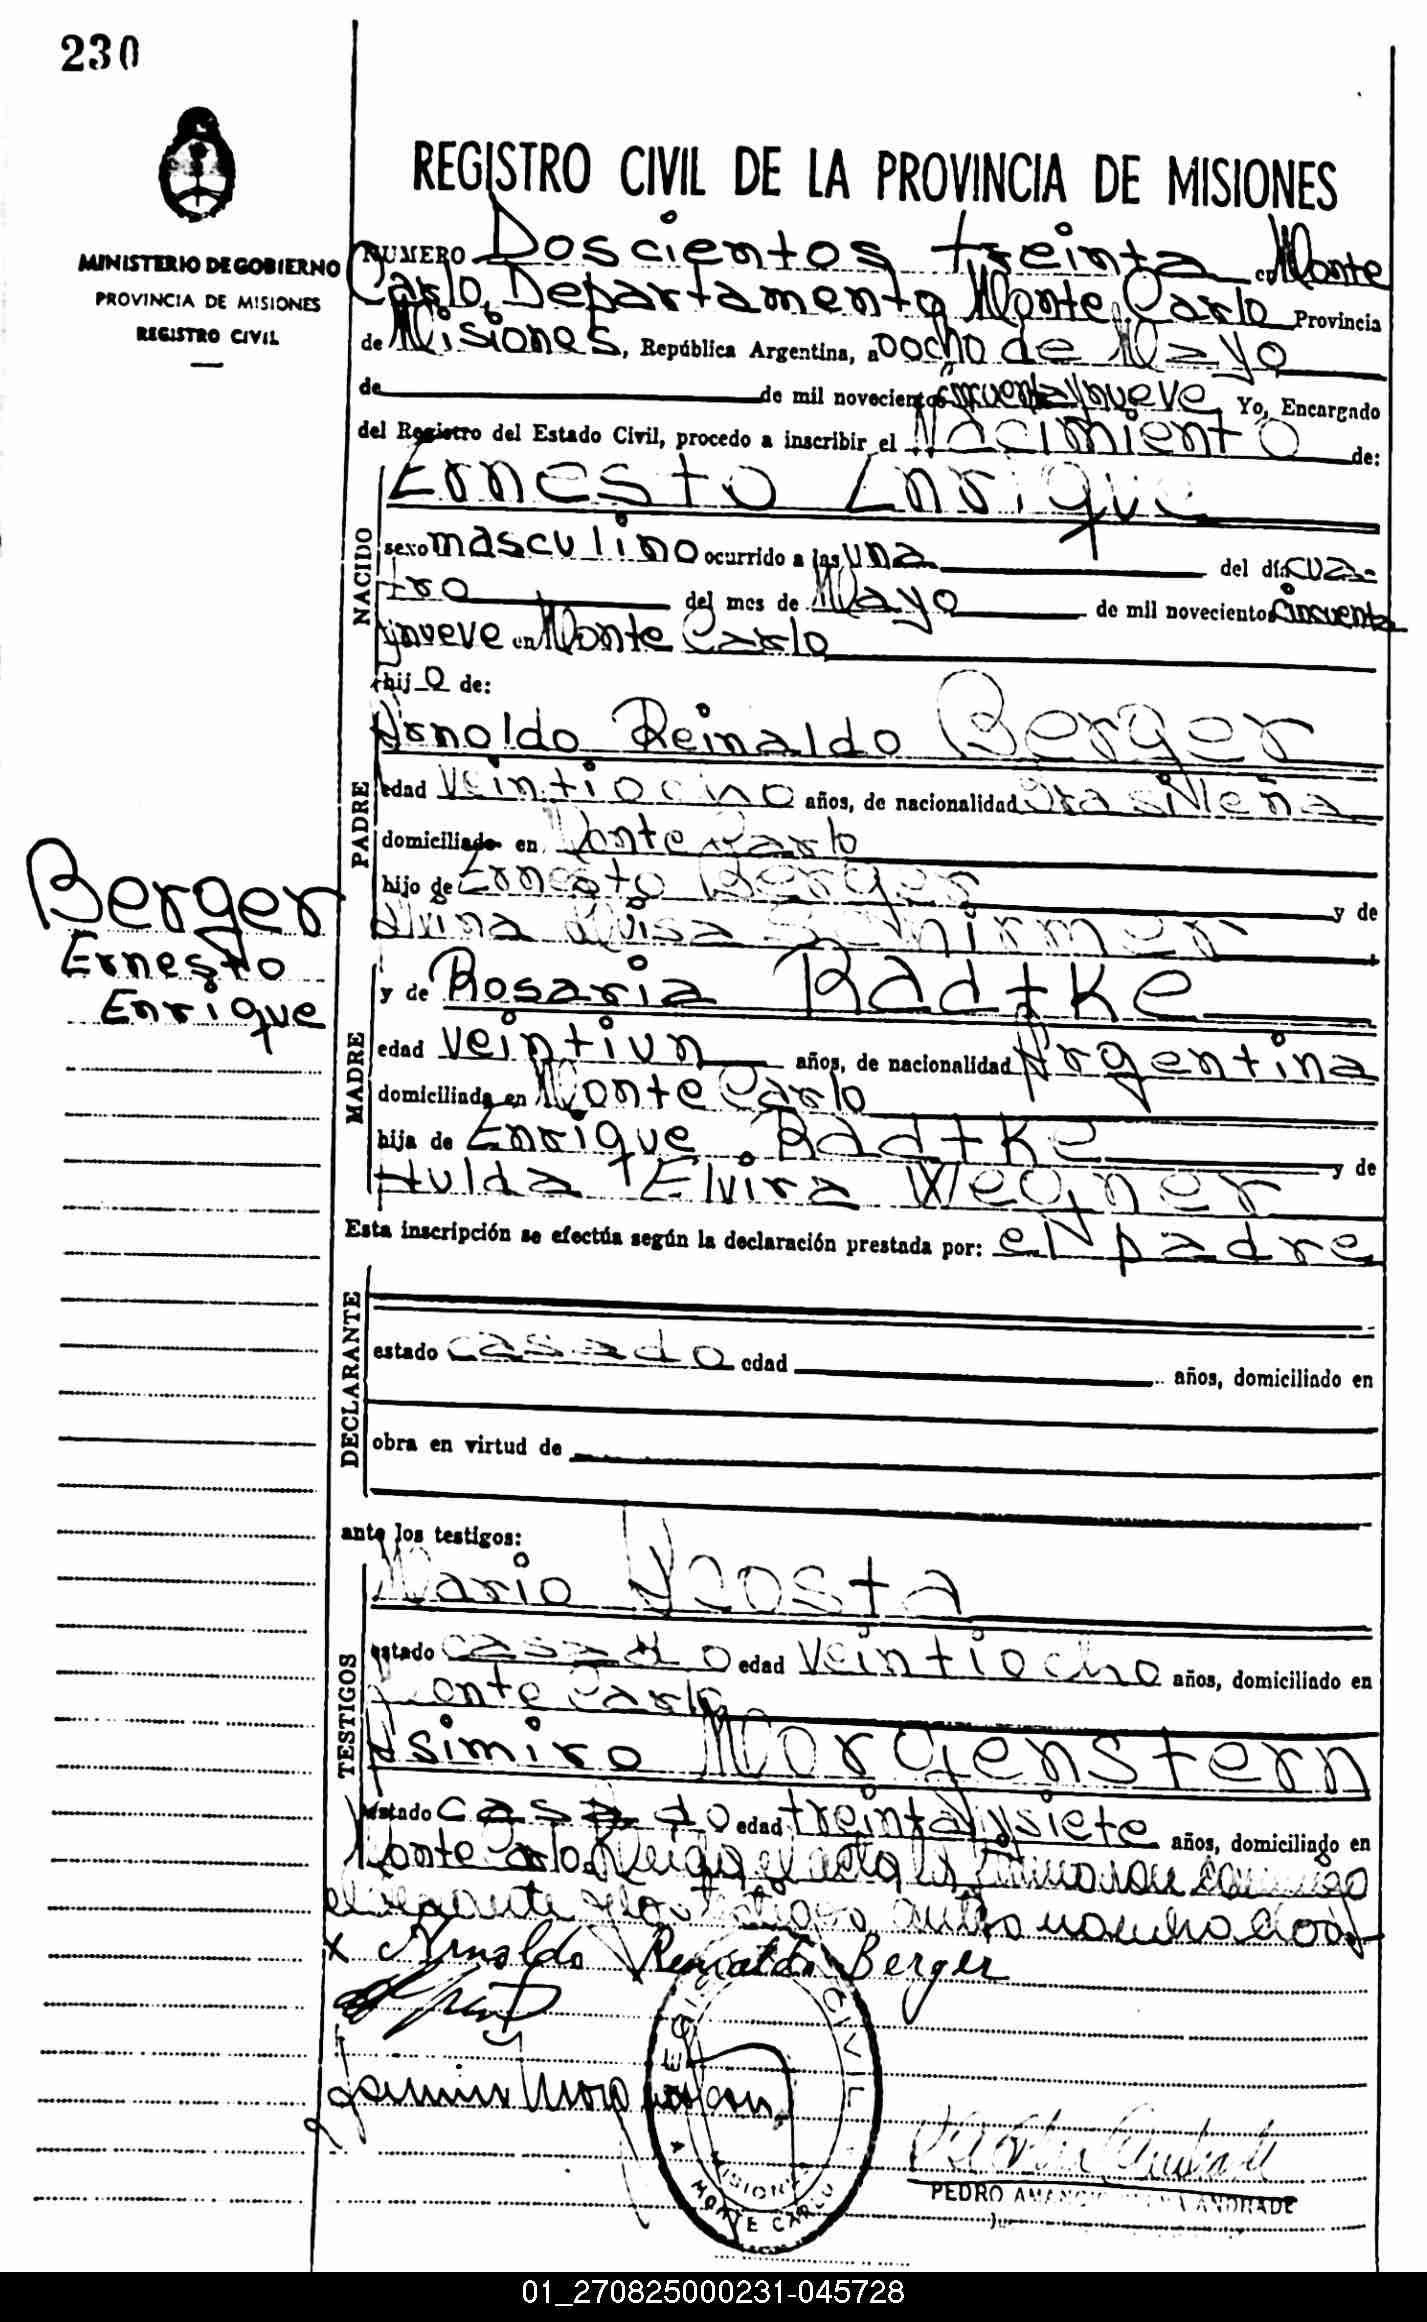 230
MINISTERIO DE GOBIERNO
PROVINCIA DE MISIONES
REGISTRO CIVIL
REGISTRO CIVIL DE LA PROVINCIA DE MISIONES
NUMERO Doscientos treinta en Monte
Carlo, Departamento Monte Carlo Provincia
de Misiones, República Argentina, a ocho de Mayo
de de mil novecientos cincuenta y nueve Yo, Encargado
del Registro del Estado Civil, procedo a inscribir el Nacimiento de:
NACIDO
Ernesto Enrique
sexo masculino ocurrido a las una del día cua-
tro del mes de Mayo de mil novecientos cincuenta
y nueve en Monte Carlo
hijo de:
PADRE
Arnoldo Reinaldo Berger
edad veintiocho años, de nacionalidad Brasileña
domiciliado en Monte Carlo
hijo de Ernesto Berger y de
Alvina Luisa Schirmer
Berger
Ernesto
Enrique
MADRE
y de Rosaria Radtke
edad veintiun años, de nacionalidad Argentina
domiciliada en Monte Carlo
hija de Enrique Radtke y de
Hulda Elvira Wegner
Esta inscripción se efectúa según la declaración prestada por: el padre
DECLARANTE
estado casado edad años, domiciliado en
obra en virtud de
ante los testigos:
TESTIGOS
Mario Acosta
estado casado edad veintiocho años, domiciliado en
Monte Carlo
Asimiro Morgenstern
estado casado edad treinta y siete años, domiciliado en
Monte Carlo. Leida el acta la firmaron conmigo
el declarante y los testigos antes nombrados
x Arnoldo Reinaldo Berger
REGISTRO CIVIL
MISIONES
MONTE CARLO
PEDRO ANDRADE
01_270825000231-045728